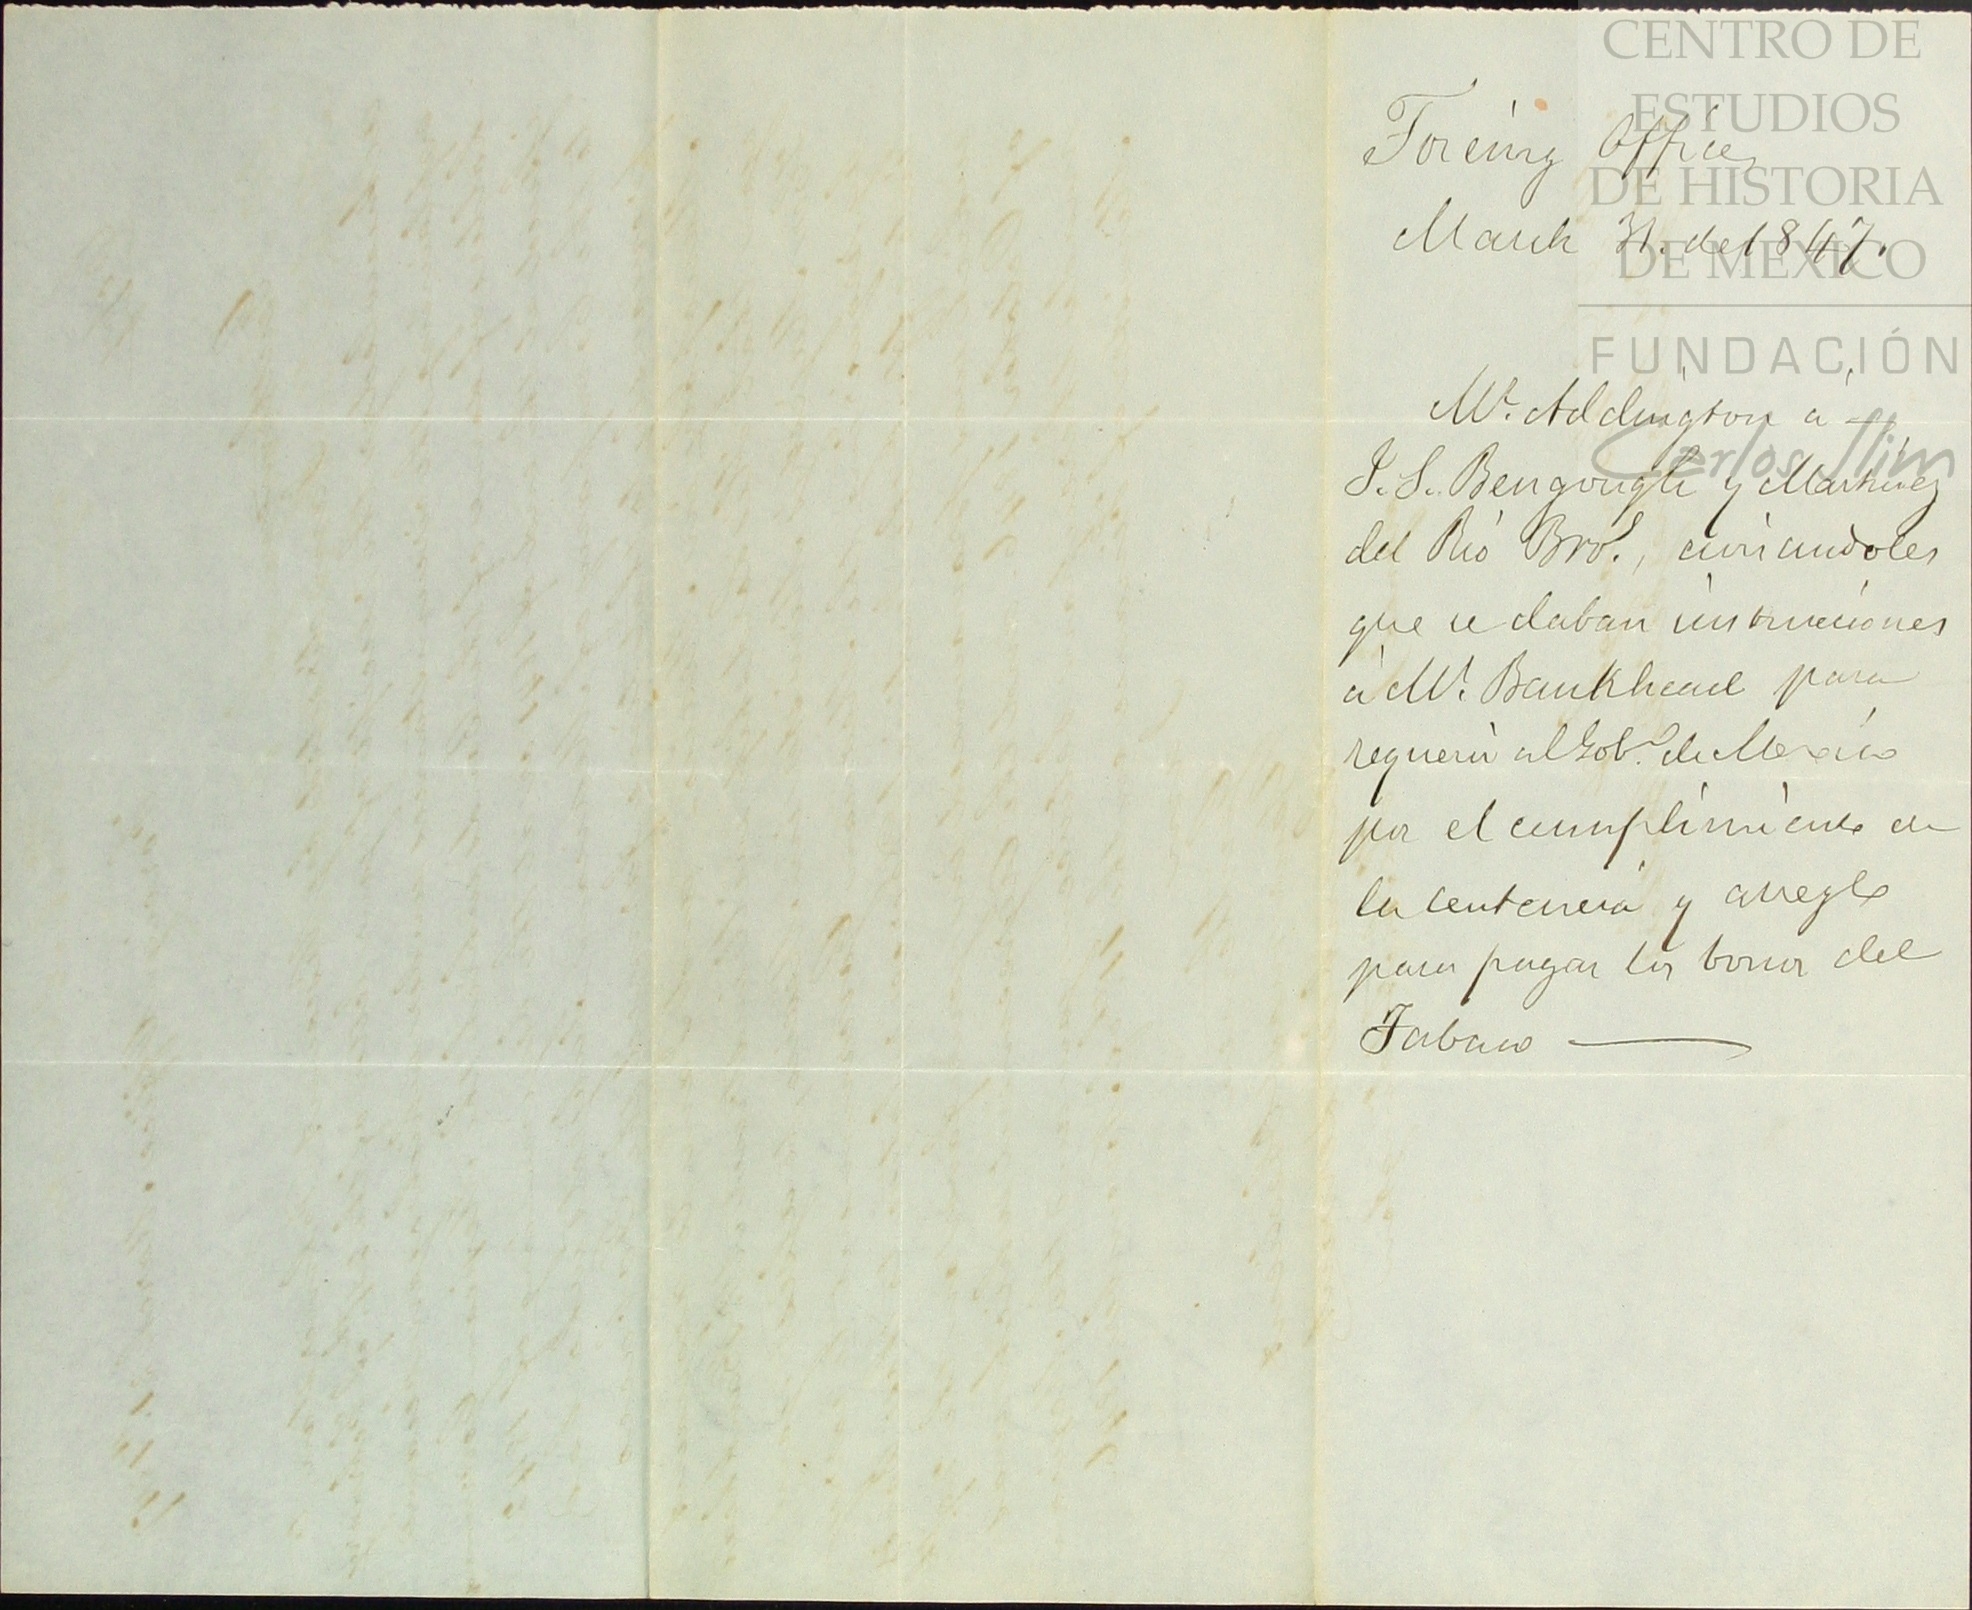 CENTRO DE
ESTUDIOS
DE HISTORIA
DE MÉXICO
FUNDACIÓN
Carlos Slim
Foreing Office
March 31. de 1847.
Mr. Addington á
J. S. Bengough y Martinez
del Rio Bros., avisandoles
que se daban instrucciones
á Mr. Bankhead para
requerir al Gobno. de Mexico
por el cumplimiento de
la sentencia y arreglo
para pagar los bonos del
Tabaco